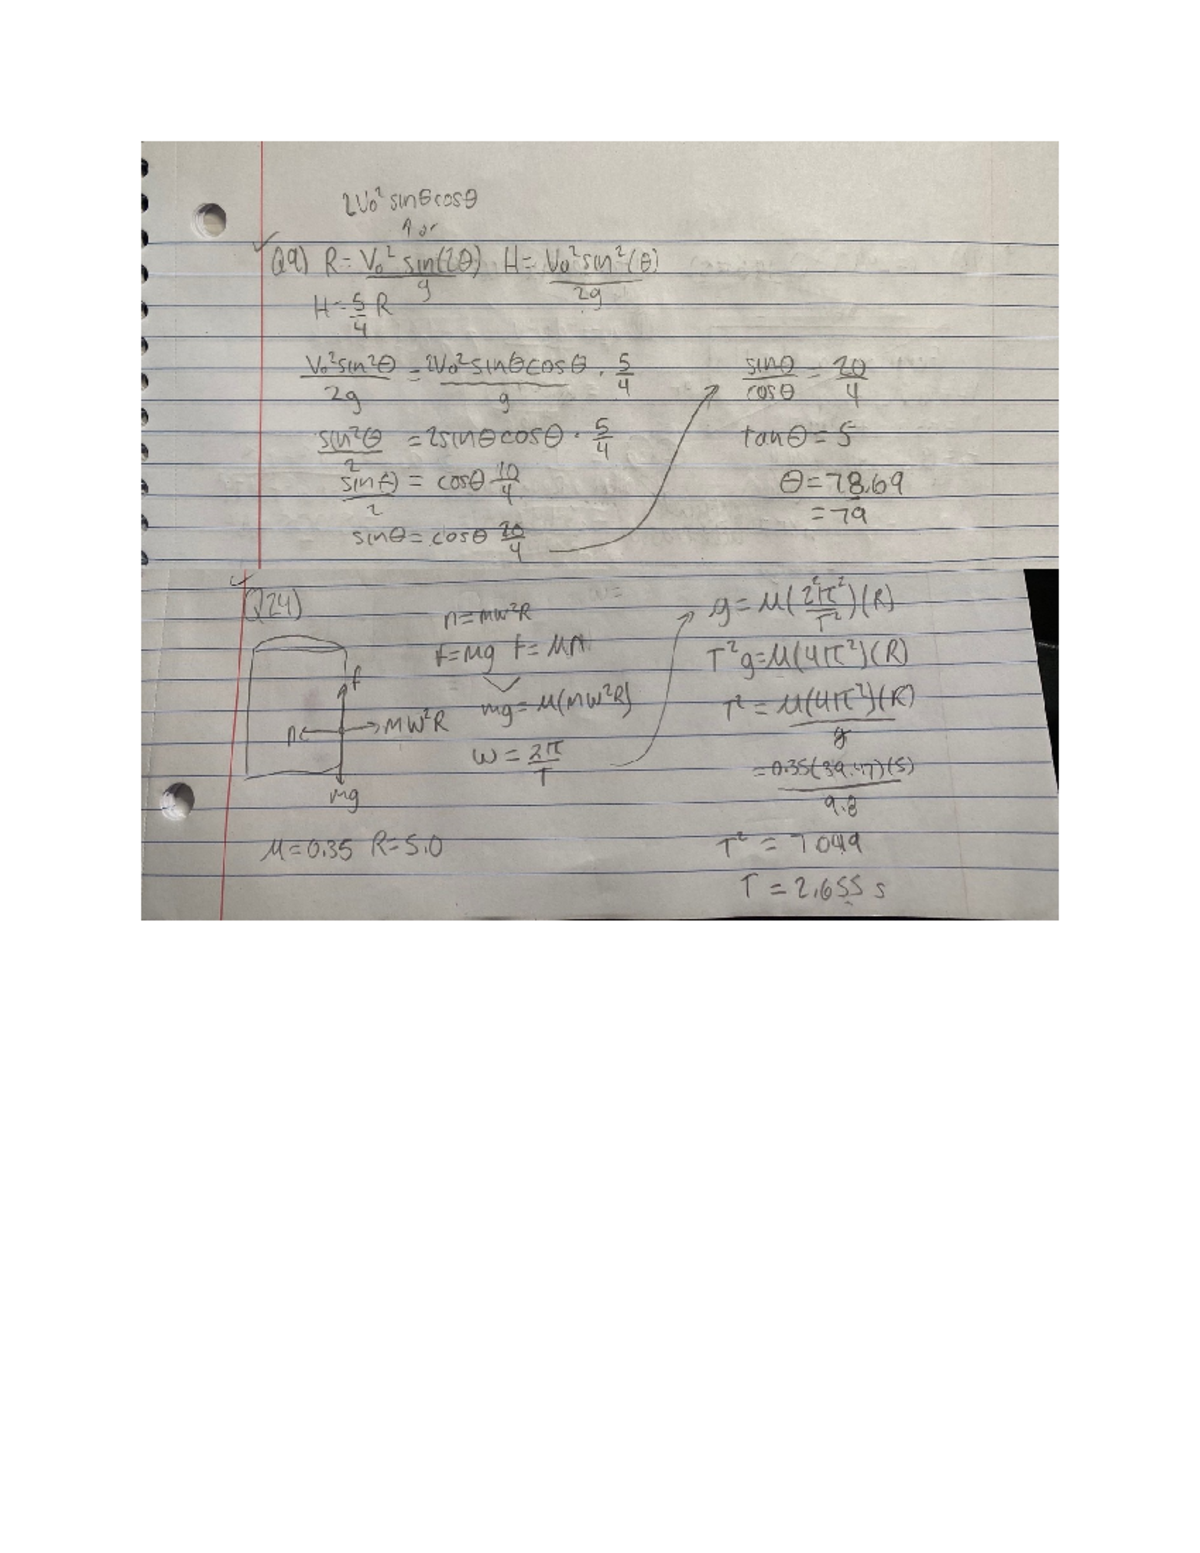 2V₀² sinθcosθ
↑ or
Q9) R = V₀² sin(2θ)/g H = V₀² sin²(θ)/2g
H = 5/4 R
V₀²sin²θ/2g = 2V₀²sinθcosθ/g · 5/4
sin²θ/2 = 2sinθcosθ · 5/4
sinθ/2 = cosθ 10/4
sinθ = cosθ 20/4
sinθ/cosθ = 20/4
tanθ = 5
θ = 78.69
= 79
Q24)
f
n ← → mw²R
mg
μ = 0.35 R = 5.0
n = mw²R
f = mg f = μn
mg = μ(mw²R)
w = 2π/T
g = μ(2²π²/T²)(R)
T²g = μ(4π²)(R)
T² = μ(4π²)(R)/g
= 0.35(39.47)(5)/9.8
T² = 7.049
T = 2.655 s